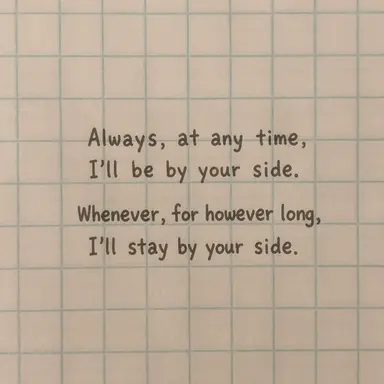 Always, at any time,
I'll be by your side.
Whenever, for however long,
I'll stay by your side.